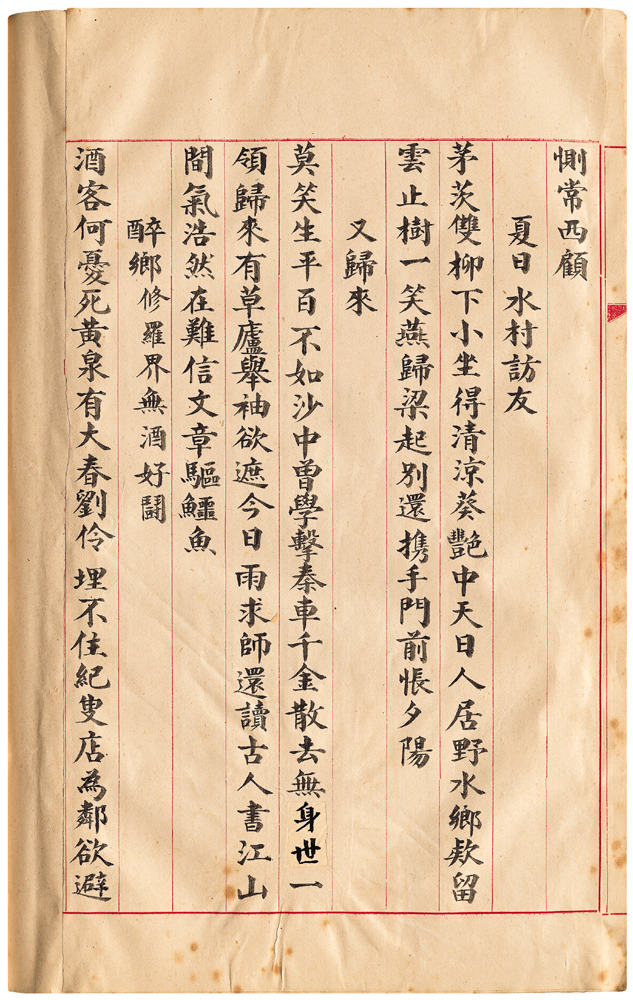 惻常西顧
夏日水村訪友
茅茨雙柳下小坐得清涼葵艷中天日人居野水鄉欵留
雲止樹一笑燕歸梁起別還携手門前悵夕陽
又歸來
莫笑生平百不如沙中曾學擊秦車千金散去無身世一
領歸來有草廬舉袖欲遮今日雨求師還讀古人書江山
間氣浩然在難信文章驅鱷魚
醉鄉修羅界無酒好鬪
酒客何憂死黃泉有大春劉伶埋不住紀叟店為鄰欲避